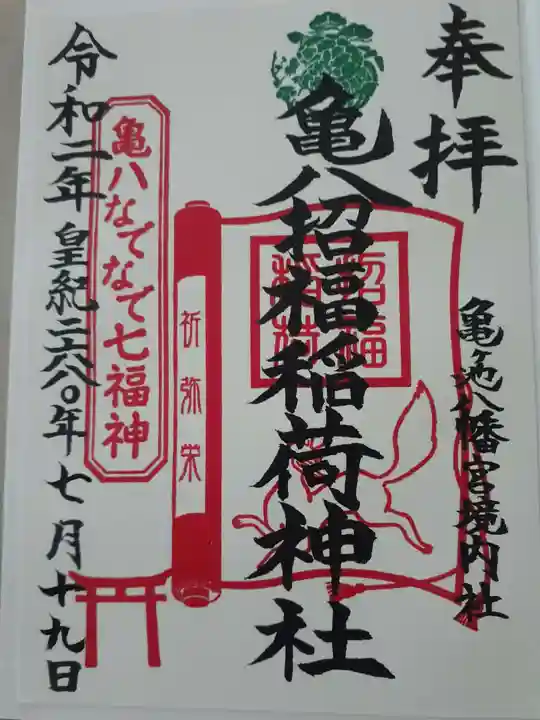 奉拝
亀ヶ池八幡宮境内社
亀八招福稲荷神社
招福
稲荷
祈弥栄
亀八なでなで七福神
令和二年皇紀二六八〇年七月十九日